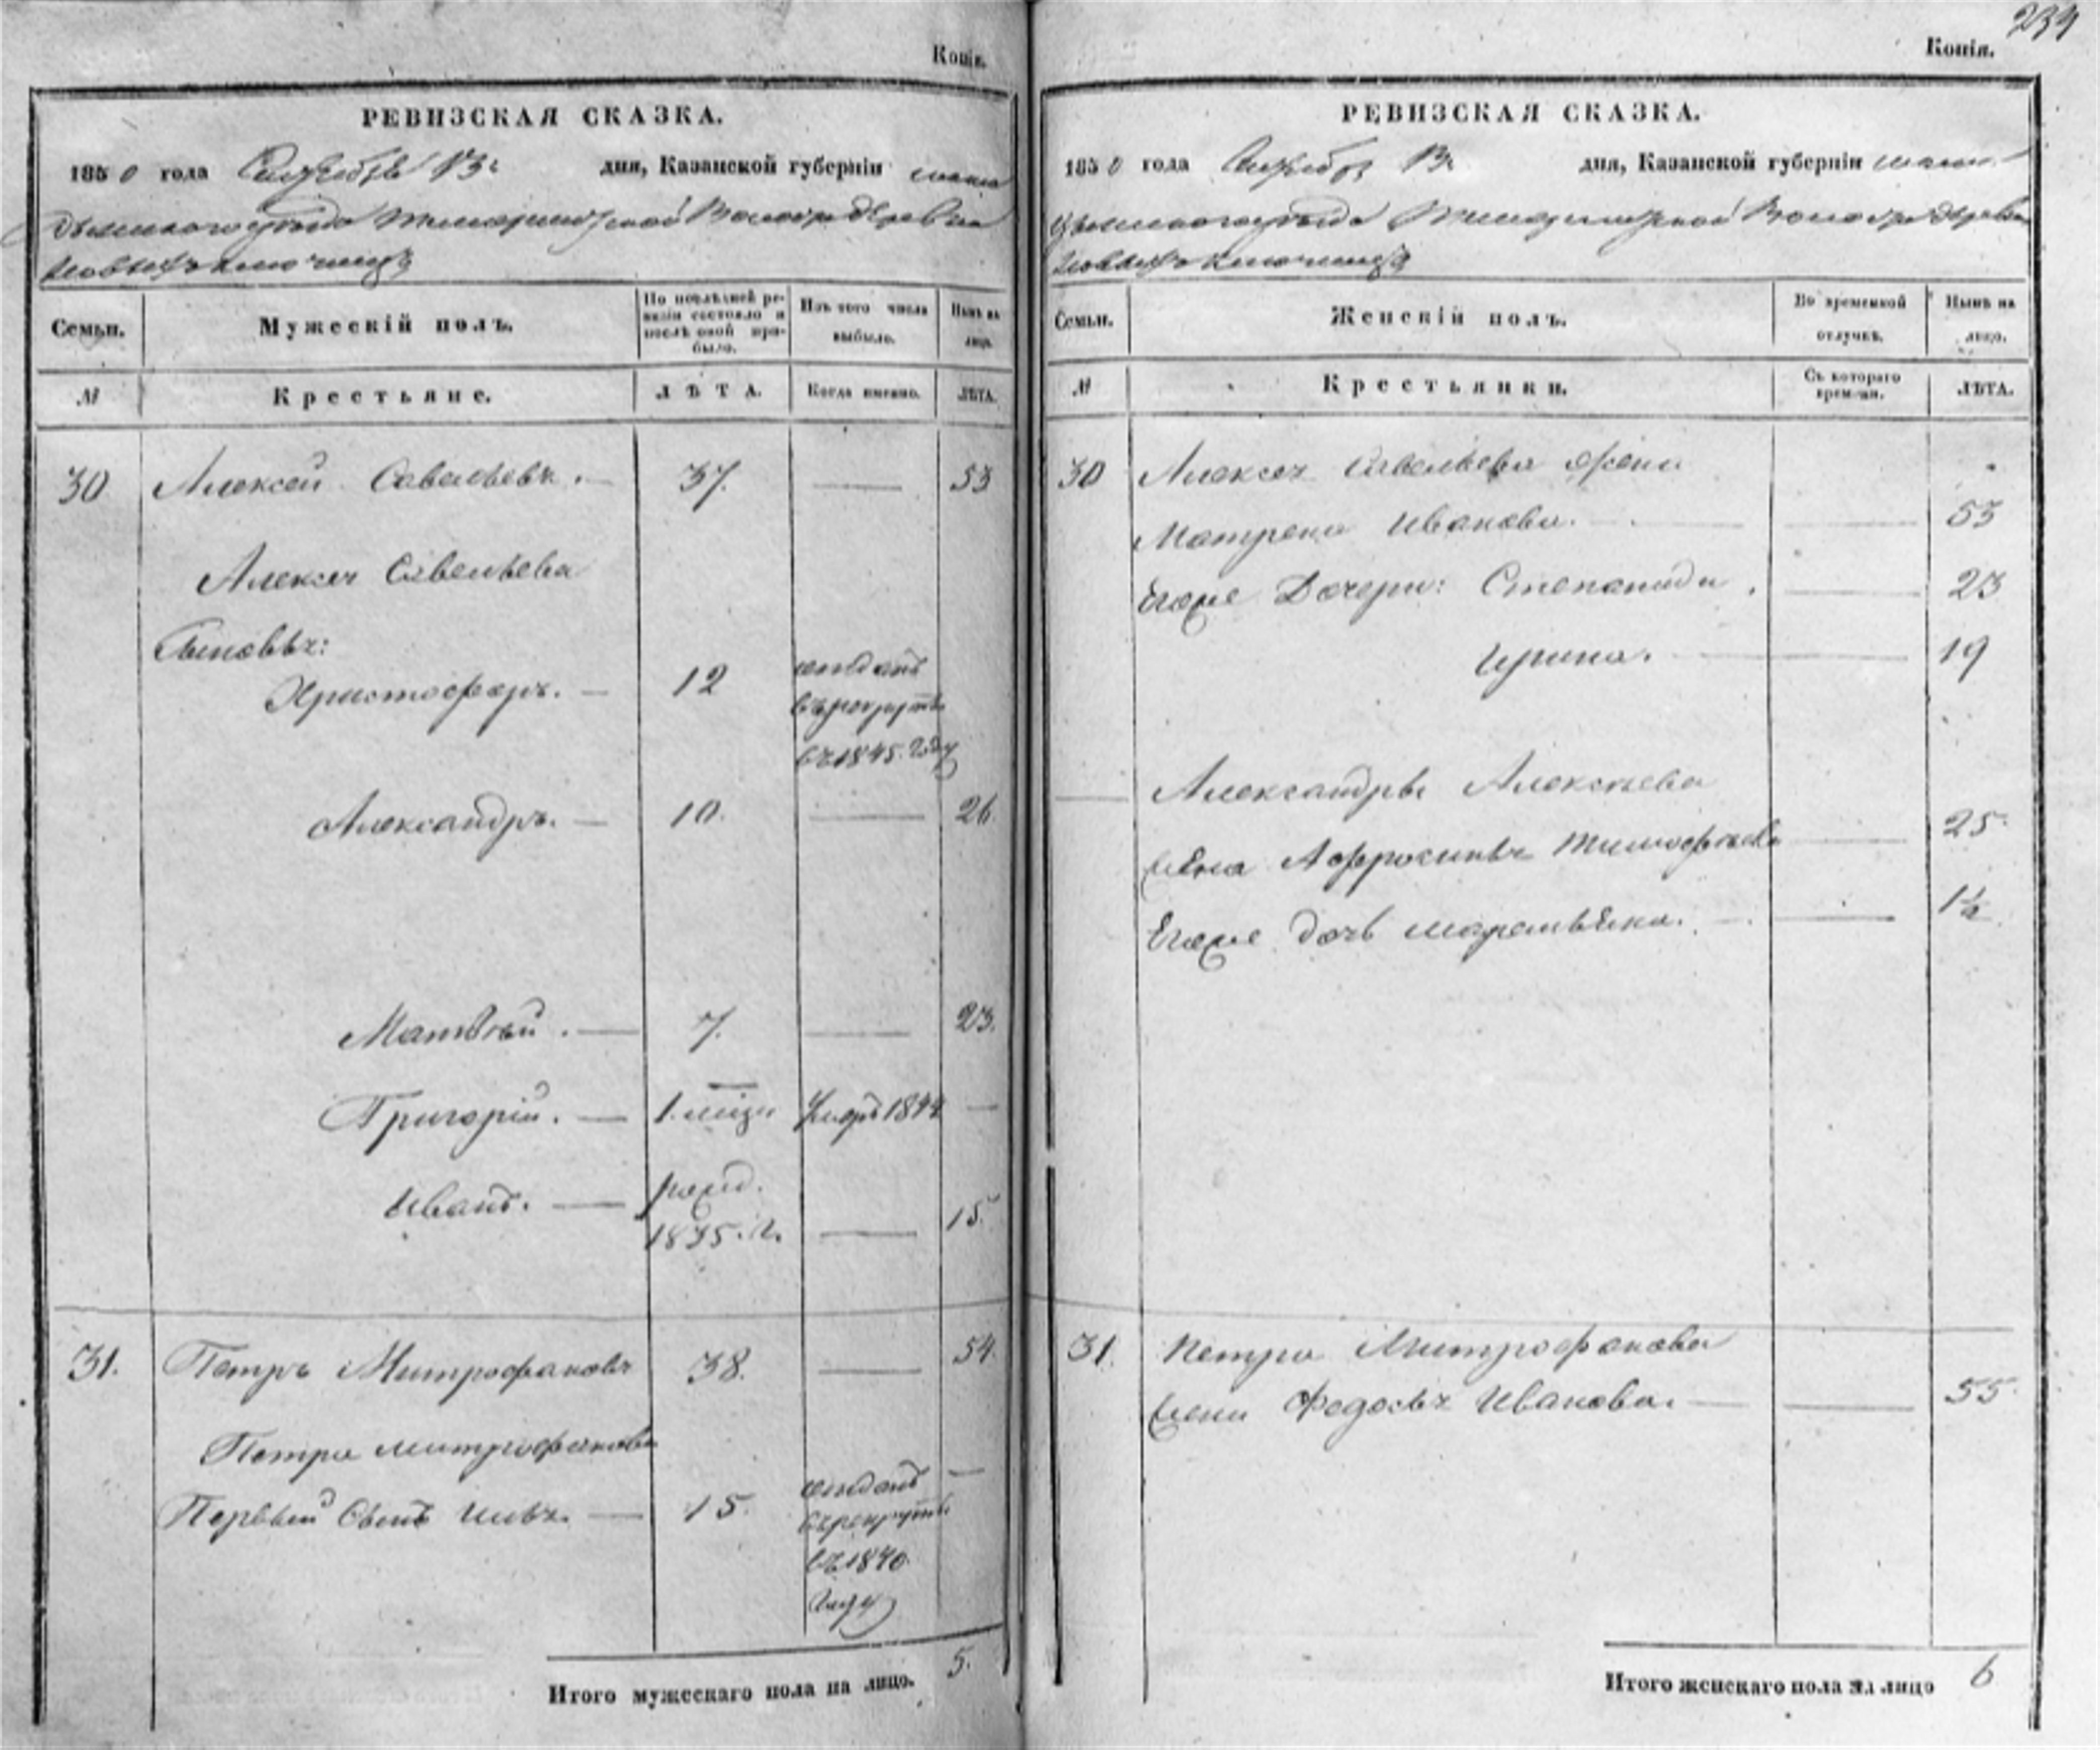 234
Копія.
РЕВИЗСКАЯ СКАЗКА.
1850 года Сентября 13. дня, Казанской губерніи
уѣзда деревни
Новыхъ
Семьи.
Мужескій полъ.
По послѣдней ре-
визіи состояло и
послѣ оной при-
было.
Изъ того числа
выбыло.
Нынѣ на
лицо.
№
Крестьяне.
ЛѢТА.
Когда именно.
ЛѢТА.
30 Алексей Савельевъ. 37. — 53
Алексея Савельева
Сыновья:
Христофоръ. — 12 отданъ
въ рекруты
въ 1845. году
Александръ. — 10. — 26.
Матвѣй. — 7. — 23.
Григорій. — 1. умеръ 1844 —
Иванъ. — рожд.
1835. г. — 15.
31. Петръ Митрофановъ 38. — 54.
Петра Митрофанова
Первый Сынъ — 15. отданъ —
въ рекруты
въ 1840
году
Итого мужескаго пола на лицо. 5.
Копія.
РЕВИЗСКАЯ СКАЗКА.
1850 года Сентября 13. дня, Казанской губерніи
уѣзда деревни
Новыхъ
Семьи.
Женскій полъ.
Во временной
отлучкѣ.
Нынѣ на
лицо.
№
Крестьянки.
Съ котораго
времени.
ЛѢТА.
30 Алексея Савельева жена
Матрена Иванова. — 53
Егоже Дочери: Степанида. — 23
Ирина. — 19
— Александра Алексеева
жена Афросинья Тимофѣева — 25.
Егоже дочь Маремьяна. — 1½
31. Петра Митрофанова
жена Федосья Иванова. — 55.
Итого женскаго пола на лицо 6